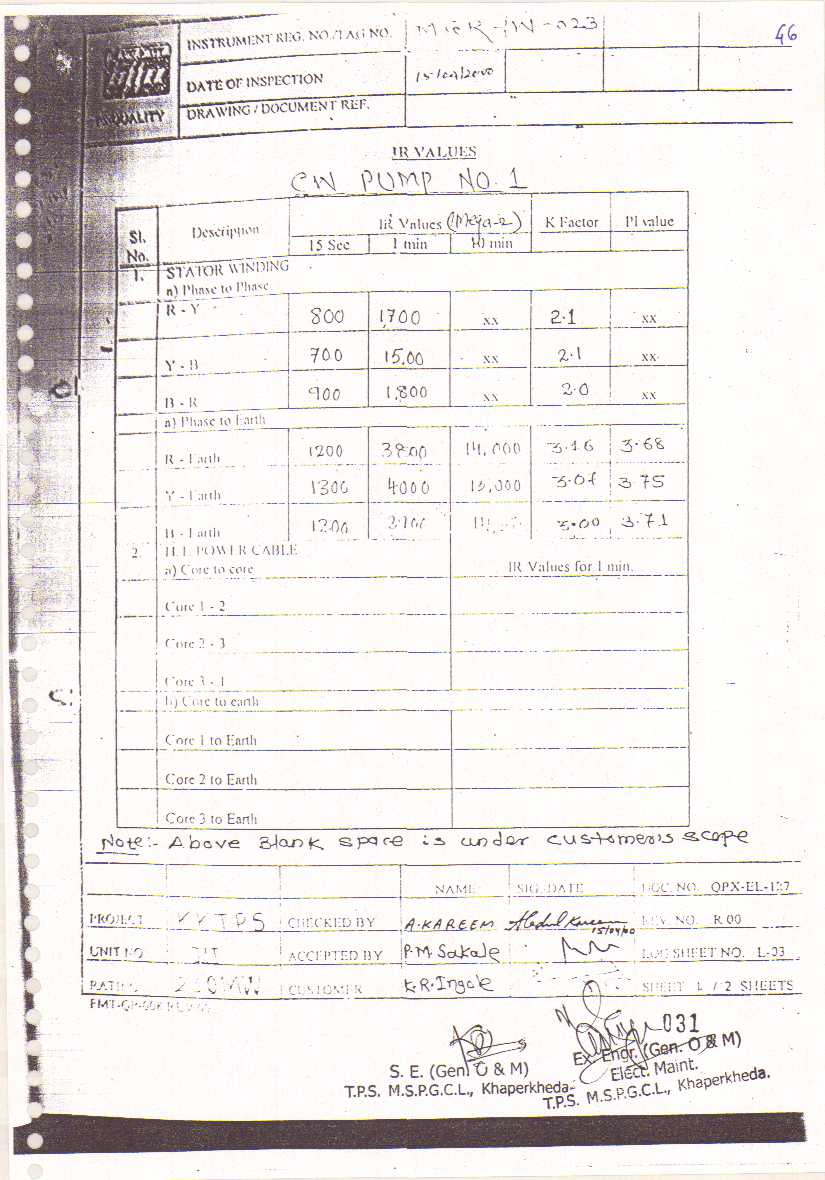 46
INSTRUMENT REG. NO./TAG NO.
DATE OF INSPECTION 15/04/2000
DRAWING / DOCUMENT REF.
QUALITY
IR VALUES
CW PUMP NO. 1
Sl. No. Description IR Values (Mega-Ω) K Factor PI value
15 Sec 1 min 10 min
1. STATOR WINDING
a) Phase to Phase
R - Y 800 1700 xx 2.1 xx
Y - B 700 1500 xx 2.1 xx
B - R 900 1,800 xx 2.0 xx
a) Phase to Earth
R - Earth 1200 3800 14,000 3.16 3.68
Y - Earth 1300 4000 15,000 3.07 3.75
B - Earth 1300 3.00 3.71
2. H.T. POWER CABLE
a) Core to core IR Values for 1 min.
Core 1 - 2
Core 2 - 3
Core 3 - 1
b) Core to earth
Core 1 to Earth
Core 2 to Earth
Core 3 to Earth
Note:- Above Blank space is under customer's scope
NAME SIG. DATE DOC NO. QPX-EL-127
PROJECT KKTPS CHECKED BY A. KAREEM Abdul Kareem 15/04/00 REV. NO. R 00
UNIT NO ACCEPTED BY P.M. Sakale LOG SHEET NO. L-03
RATING 210MW CUSTOMER K.R. Ingole SHEET 1 / 2 SHEETS
031
S. E. (Gen O & M)
T.P.S. M.S.P.G.C.L., Khaperkheda.
Ex. Engr. (Gen. O & M)
Elect. Maint.
T.P.S. M.S.P.G.C.L., Khaperkheda.